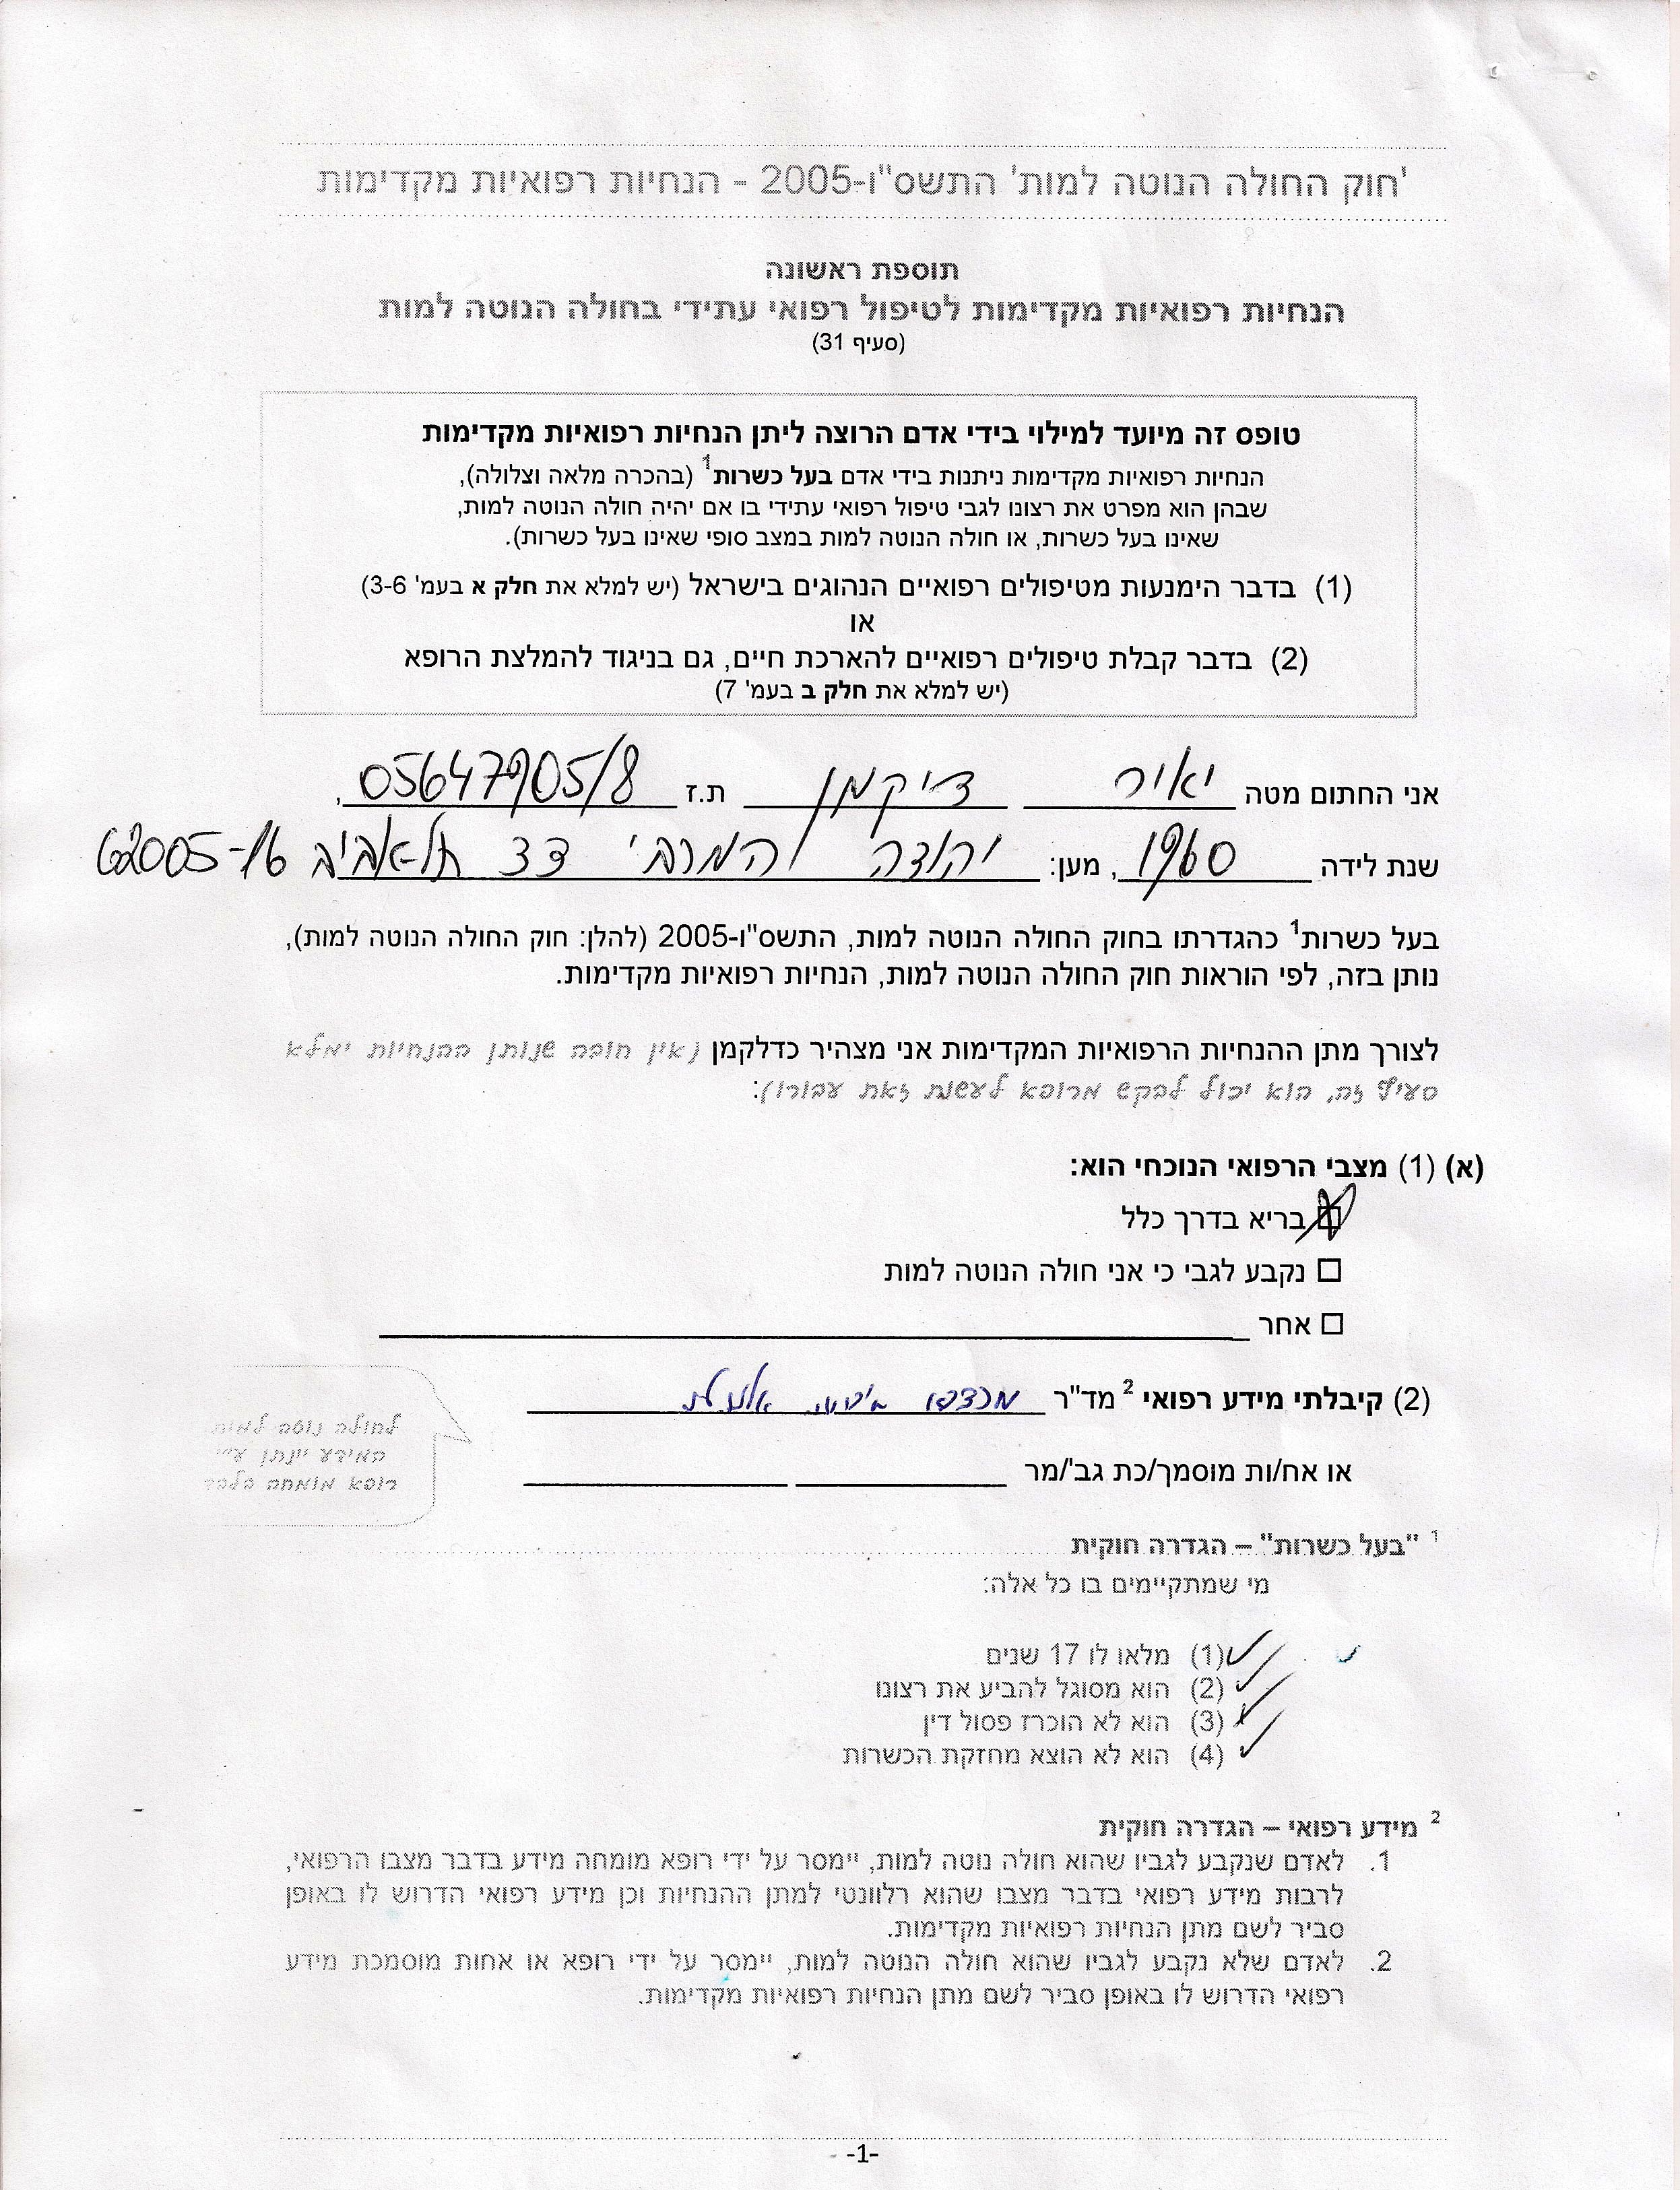 'חוק החולה הנוטה למות' התשס"ו-2005 - הנחיות רפואיות מקדימות
תוספת ראשונה
הנחיות רפואיות מקדימות לטיפול רפואי עתידי בחולה הנוטה למות
(סעיף 31)
טופס זה מיועד למילוי בידי אדם הרוצה ליתן הנחיות רפואיות מקדימות
הנחיות רפואיות מקדימות ניתנות בידי אדם בעל כשרות1 (בהכרה מלאה וצלולה),
שבהן הוא מפרט את רצונו לגבי טיפול רפואי עתידי בו אם יהיה חולה הנוטה למות,
שאינו בעל כשרות, או חולה הנוטה למות במצב סופי שאינו בעל כשרות).
(1) בדבר הימנעות מטיפולים רפואיים הנהוגים בישראל (יש למלא את חלק א בעמ' 3-6)
או
(2) בדבר קבלת טיפולים רפואיים להארכת חיים, גם בניגוד להמלצת הרופא
(יש למלא את חלק ב בעמ' 7)
אני החתום מטה יאיר דיקמן ת.ז 05647905/8,
שנת לידה 1960, מען: יהודה המכבי 33 תל-אביב 62005-16
בעל כשרות1 כהגדרתו בחוק החולה הנוטה למות, התשס"ו-2005 (להלן: חוק החולה הנוטה למות),
נותן בזה, לפי הוראות חוק החולה הנוטה למות, הנחיות רפואיות מקדימות.
לצורך מתן ההנחיות הרפואיות המקדימות אני מצהיר כדלקמן (אין חובה שנותן ההנחיות ימלא
סעיף זה, הוא יכול לבקש מרופא לעשות זאת עבורו):
(א) (1) מצבי הרפואי הנוכחי הוא:
בריא בדרך כלל
נקבע לגבי כי אני חולה הנוטה למות
אחר
(2) קיבלתי מידע רפואי 2 מד"ר
לחולה נוטה למות
המידע יינתן ע"י
רופא מומחה בלבד
או אח/ות מוסמך/כת גב'/מר
1 "בעל כשרות" – הגדרה חוקית
מי שמתקיימים בו כל אלה:
(1) מלאו לו 17 שנים
(2) הוא מסוגל להביע את רצונו
(3) הוא לא הוכרז פסול דין
(4) הוא לא הוצא מחזקת הכשרות
2 מידע רפואי – הגדרה חוקית
1. לאדם שנקבע לגביו שהוא חולה נוטה למות, יימסר על ידי רופא מומחה מידע בדבר מצבו הרפואי,
לרבות מידע רפואי בדבר מצבו שהוא רלוונטי למתן ההנחיות וכן מידע רפואי הדרוש לו באופן
סביר לשם מתן הנחיות רפואיות מקדימות.
2. לאדם שלא נקבע לגביו שהוא חולה הנוטה למות, יימסר על ידי רופא או אחות מוסמכת מידע
רפואי הדרוש לו באופן סביר לשם מתן הנחיות רפואיות מקדימות.
-1-